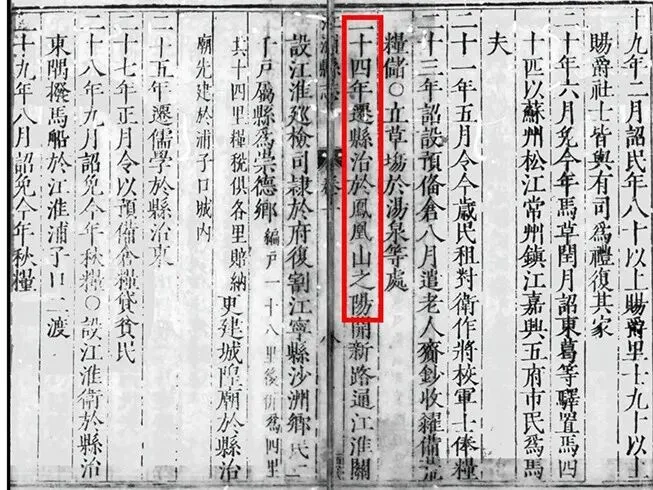 十九年二月詔民年八十以上賜爵里士九十以上
賜爵社士皆與有司爲禮復其家
二十年六月免今年馬草閏月詔東葛等驛置馬四
十匹以蘇州松江常州鎮江嘉興五府市民爲馬
夫
二十一年五月令今歲民租對衛作將校軍士俸糧
二十三年詔設預備倉八月遣老人齎鈔收糴備荒
糧儲○立草塲於湯泉等處
二十四年遷縣治於鳳凰山之陽開新路通江淮關
江浦縣志 卷
設江淮廵檢司隷於府復割江寧縣沙洲鄉民二
千戸屬縣爲崇德鄉 編戸一十八里後併爲四里
其十四里糧稅俱各里賠納 更建城隍廟於縣治
廟先建於浦子口城内
二十五年遷儒學於縣治東
二十七年正月令以預備倉糧貸貧民
二十八年九月詔免今年秋糧○設江淮衛於縣治
東隅撥馬船於江淮浦子口二渡
二十九年八月詔免今年秋糧